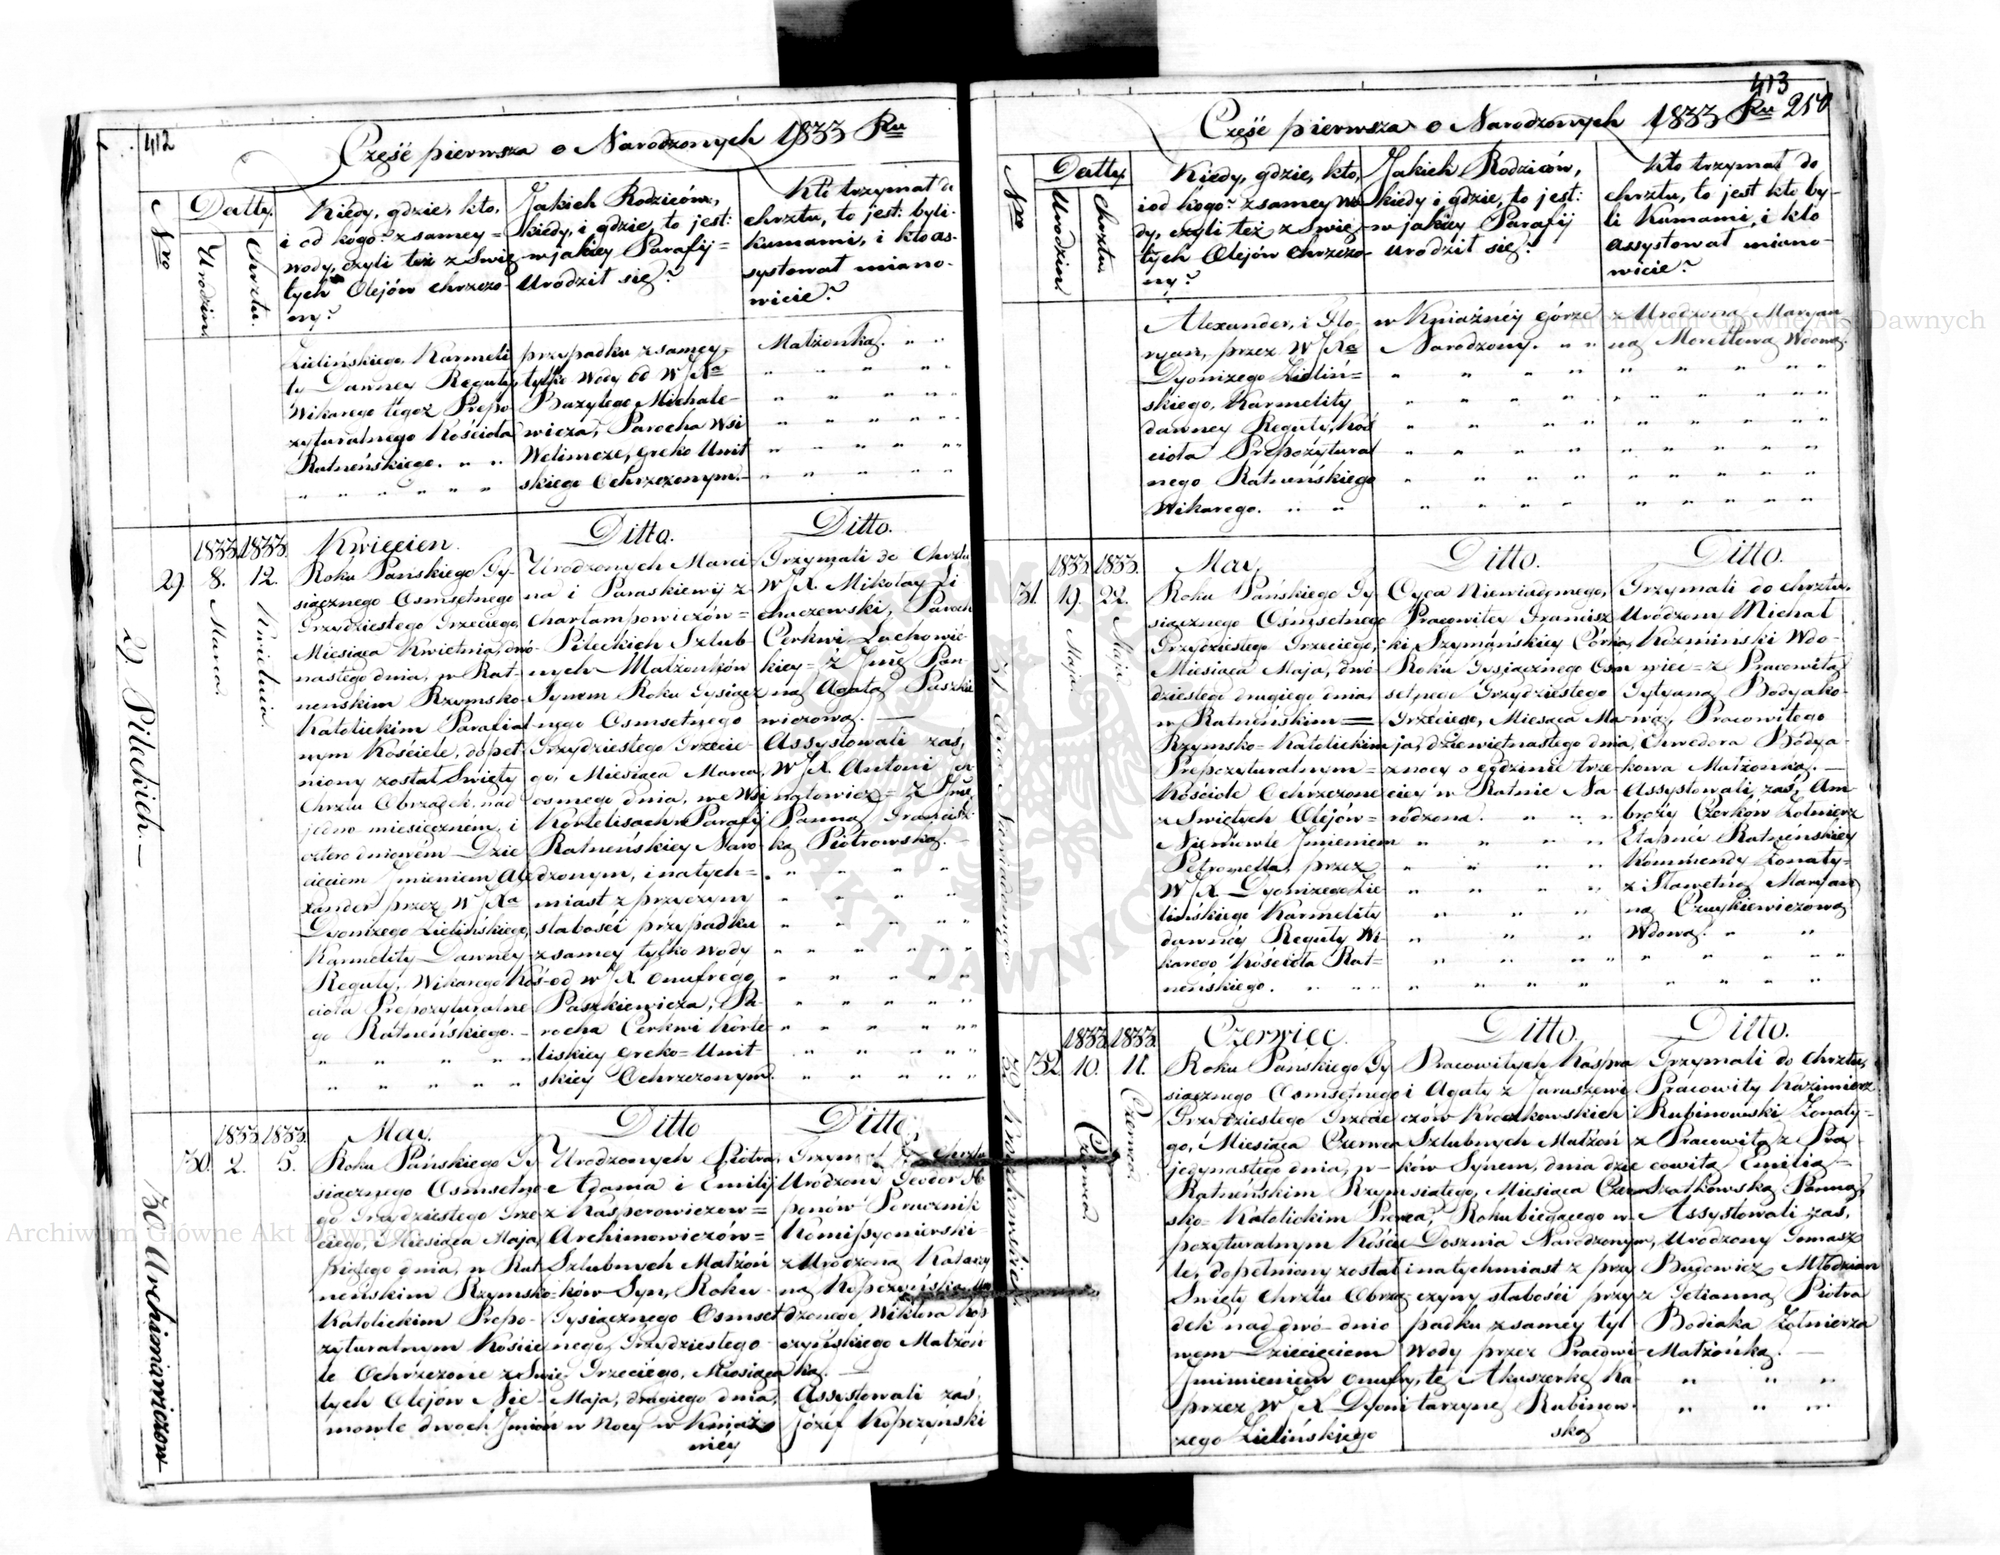 412
Część pierwsza o Narodzonych 1833 Ru
Nro
Datty.
Urodzin.
Chrztu.
Kiedy, gdzie, kto,
i od kogo? z samey =
wody, czyli też z Swię
tych Olejów chrzczo-
ny?
Jakich Rodziców,
kiedy, i gdzie, to jest:
w jakiey Parafij =
Urodził się?
Kto trzymał do
chrztu, to jest: byli-
kumami, i kto as-
systował miano-
wicie?
Zielińskiego, Karmeli
ty Dawney Reguły,
Wikarego tegoż Prepo
zyturalnego Kościoła
Ratneńskiego.
przypadku z samey-
tylko Wody od W JXa
Bazylego Michale-
wicza, Parocha Wsi
Welimcze, Greko Unit
skiego Ochrzczonym.-
Małżonka.
29
1833.
8.
Marca
1833.
12.
Kwietnia
29. Pileckich.-
Kwiecień.
Roku Pańskiego Ty-
siącznego Osmsetnego
Trzydziestego Trzeciego,
Miesiąca Kwietnia, dwó-
nastego dnia, w Rat-
neńskim Rzymsko-
Katolickim Parafial-
nym Kościele, dopeł-
niony został Swięty
Chrztu Obrządek, nad
jedno miesięcznem, i
cztero dniowem Dzie
cięciem Jmieniem Ale
xander przez W JXa
Dyonizego Zielińskiego,
Karmelity Dawney-
Reguły, Wikarego Koś-
cioła Prepozyturalne
go Ratneńskiego.-
Ditto.
Urodzonych Marci
na i Paraskiewij z
Charłampowiczów =
Pileckich Szlub-
nych Małżonków
Synem Roku Tysiącz
nego Osmsetnego
Trzydziestego Trzecie-
go, Miesiąca Marca,
osmego dnia, we Wsi
Kortelisach w Parafij
Ratneńskiey Naro-
dzonym, i natych =
miast z przyczyny
słabości przypadku
z samey tylko Wody
od W JX Onufrego
Paszkiewicza, Pa-
rocha Cerkwi Korte-
liskiey Greko = Unit-
skiey Ochrzczonym.
Ditto.
Trzymali do Chrztu
W JX. Mikołay Li
chaczewski, Paroch
Cerkwi Lachowic
kiey = z Jmę Pan-
ną Agatą Paszkie
wiczową.
Assystowali zaś,
W JX. Antoni
z Jmę
Panną Francisz
ką Piotrowską.
30.
1833.
2.
1833.
5.
30 Archimowiczów
May.
Roku Pańskiego Ty
siącznego Osmsetne
go Trzydziestego Trze
ciego, Miesiąca Maja,
piątego dnia, w Rat
neńskim Rzymsko-
Katolickim Prepo-
zyturalnym Koście
le Ochrzczone z Swię
tych Olejów Nie-
mowle dwoch Jmion
Ditto
Urodzonych Piotra
Adama i Emilij
z Kasperowiczów =
Archimowiczów =
Szlubnych Małżon
ków Syn, Roku
Tysiącznego Osmset
nego, Trzydziestego
Trzeciego, Miesiąca
Maja, drugiego dnia,
w Nocy w Kniaż-
niey
Ditto.
Trzymali do Chrztu
Urodzoni Teodor
Porucznik
z Urodzoną Katarzy
ną Kopczyńską
Wiktora Kop
czyńskiego Małżon
ką.
Assystowali zaś,
Józef Kopczyński
413
250
Część pierwsza o Narodzonych 1833 Ru
Nro
Datty.
Urodzin.
Chrztu.
Kiedy, gdzie, kto,
i od kogo? z samey wo
dy, czyli też z Swię-
tych Olejów chrzczo-
ny?
Jakich Rodziców,
kiedy i gdzie, to jest:
w jakiey Parafij
urodził się?
Kto trzymał do
chrztu, to jest kto by-
li Kumami, i kto
assystował miano-
wicie?
Alexander, i Flo-
ryan, przez W JXa
Dyonizego Zieliń=
skiego, Karmelity
dawney Reguły, Koś
cioła Prepozytural
nego Ratneńskiego
Wikarego.
w Kniaźnéy górze
Narodzony.
z Urodzoną Maryan
ną Morelową Wdową.
31.
1833.
19.
Maja
1833.
22.
Maja
May.
Roku Pańskiego Ty
siącznego Ośmsetnego
Trzydziestego Trzeciego,
Miesiąca Maja, dwó-
dziestego drugiego dnia,
w Ratneńskim =
Rzymsko = Katolickim
Prepozyturalnym =
Kościele Ochrzczone
z Swiętych Olejów =
Niemówle Jmieniem
Petronella, przez
W JX Dyonizego Zie
lińskiego Karmelity
dawnéy Reguły Wi-
karego Kościoła Rat=
neńskiego.
Ditto.
Oyca Niewiadomego,
Pracowitey Francisz
ki Szymańskiey Córka,
Roku Tysiącznego Osm
setnego Trzydziestego
Trzeciego, Miesiąca Ma-
ja, dziewiętnastego dnia,
z nocy o godzinie trze-
ciey w Ratnie Na-
rodzona.
Ditto.
Trzymali do chrztu,
Urodzony Michał
Koźminski Wdo-
wiec = z Pracowitą
Tytyaną Bodyako-
wą, Pracowitego
Chwedora Bódya-
kowa Małżonką.
Assystowali zaś, Am
broży Czerków Żołnierz
Etapnéi Ratneńskiey
Kommendy Żonaty=
z Sławetną Maryan
ną Czuykiewiczową
Wdową.
32
1833.
10.
Czerwca
1833.
11.
Czerwca
Czerwiec.
Roku Pańskiego Ty
siącznego Osmsetnego
Trzydziestego Trzecie
go, Miesiąca Czerwca
jedynastego dnia, w-
Ratneńskim Rzym
sko- Katolickim Pre
pozyturalnym Koście
le, dopełniony został
Swięty Chrztu Obrzą
dek nad dwó-dnio
wem Dziecięciem
Jmimieniem Onufry,
przez W JX Dyoni
zego Zielińskiego
Ditto.
Pracowitych Kaspra
i Agaty z Jaruszewi
czów Kroczkowskich
Szlubnych Małżon
ków Synem, dnia dzie
siątego, Miesiąca Czer
wca, Roku biegącego w
Narodzonym,
i natychmiast z przy
czyny słabości przy-
padku z samey tyl
Wody przez Pracowi
tę Akuszerkę Ka-
tarzynę Rubinow-
ską
Ditto.
Trzymali do Chrztu,
Pracowity Kazimierz
Rubinowski Żonaty-
z Pracowitą z Pra
cowitą Emilią
Szatkowską Panną,
Assystowali zaś,
Urodzony Tomasz
Bugowicz Młodzian
z Jelianną Piotra
Bodiaka Żołnierza
Małżonką.
Archiwum Główne Akt Dawnych
Archiwum Główne Akt Dawnych
AKT DAWNYCH